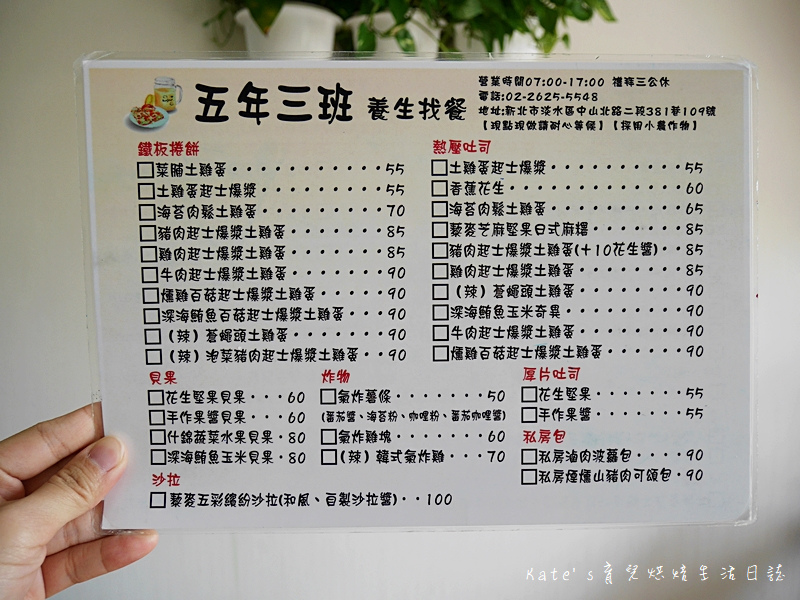 五年三班 養生找餐
營業時間07:00-17:00 禮拜三公休
電話:02-2625-5548
地址:新北市淡水區中山北路二段381巷109號
【現點現做請耐心等候】【採用小農作物】
鐵板捲餅
□菜脯土雞蛋・・・・・・・・・・・・・55
□土雞蛋起士爆漿・・・・・・・・・・・55
□海苔肉鬆土雞蛋・・・・・・・・・・・70
□豬肉起士爆漿土雞蛋・・・・・・・・・85
□雞肉起士爆漿土雞蛋・・・・・・・・・85
□牛肉起士爆漿土雞蛋・・・・・・・・・90
□燻雞百菇起士爆漿土雞蛋・・・・・・・90
□深海鮪魚百菇起士爆漿土雞蛋・・・・・90
□（辣）蒼蠅頭土雞蛋・・・・・・・・・90
□（辣）泡菜豬肉起士爆漿土雞蛋・・・・90
熱壓吐司
□土雞蛋起士爆漿・・・・・・・・・・・55
□香蕉花生・・・・・・・・・・・・・・60
□海苔肉鬆土雞蛋・・・・・・・・・・・65
□藜麥芝麻堅果日式麻糬・・・・・・・・85
□豬肉起士爆漿土雞蛋(+10花生醬)・・85
□雞肉起士爆漿土雞蛋・・・・・・・・・85
□（辣）蒼蠅頭土雞蛋・・・・・・・・・90
□深海鮪魚玉米奇異・・・・・・・・・・90
□牛肉起士爆漿土雞蛋・・・・・・・・・90
□燻雞百菇起士爆漿土雞蛋・・・・・・・90
貝果
□花生堅果貝果・・・60
□手作果醬貝果・・・60
□什錦蔬菜水果貝果・80
□深海鮪魚玉米貝果・80
炸物
□氣炸薯條・・・・・・・50
(番茄醬、海苔粉、咖哩粉、番茄咖哩醬)
□氣炸雞塊・・・・・・・60
□（辣）韓式氣炸雞・・・70
厚片吐司
□花生堅果・・・・・・・55
□手作果醬・・・・・・・55
私房包
□私房滷肉波蘿包・・・・90
□私房煙燻山豬肉可頌包・90
沙拉
□藜麥五彩繽紛沙拉(和風、自製沙拉醬)・・100
Kate's育兒烘焙生活日誌